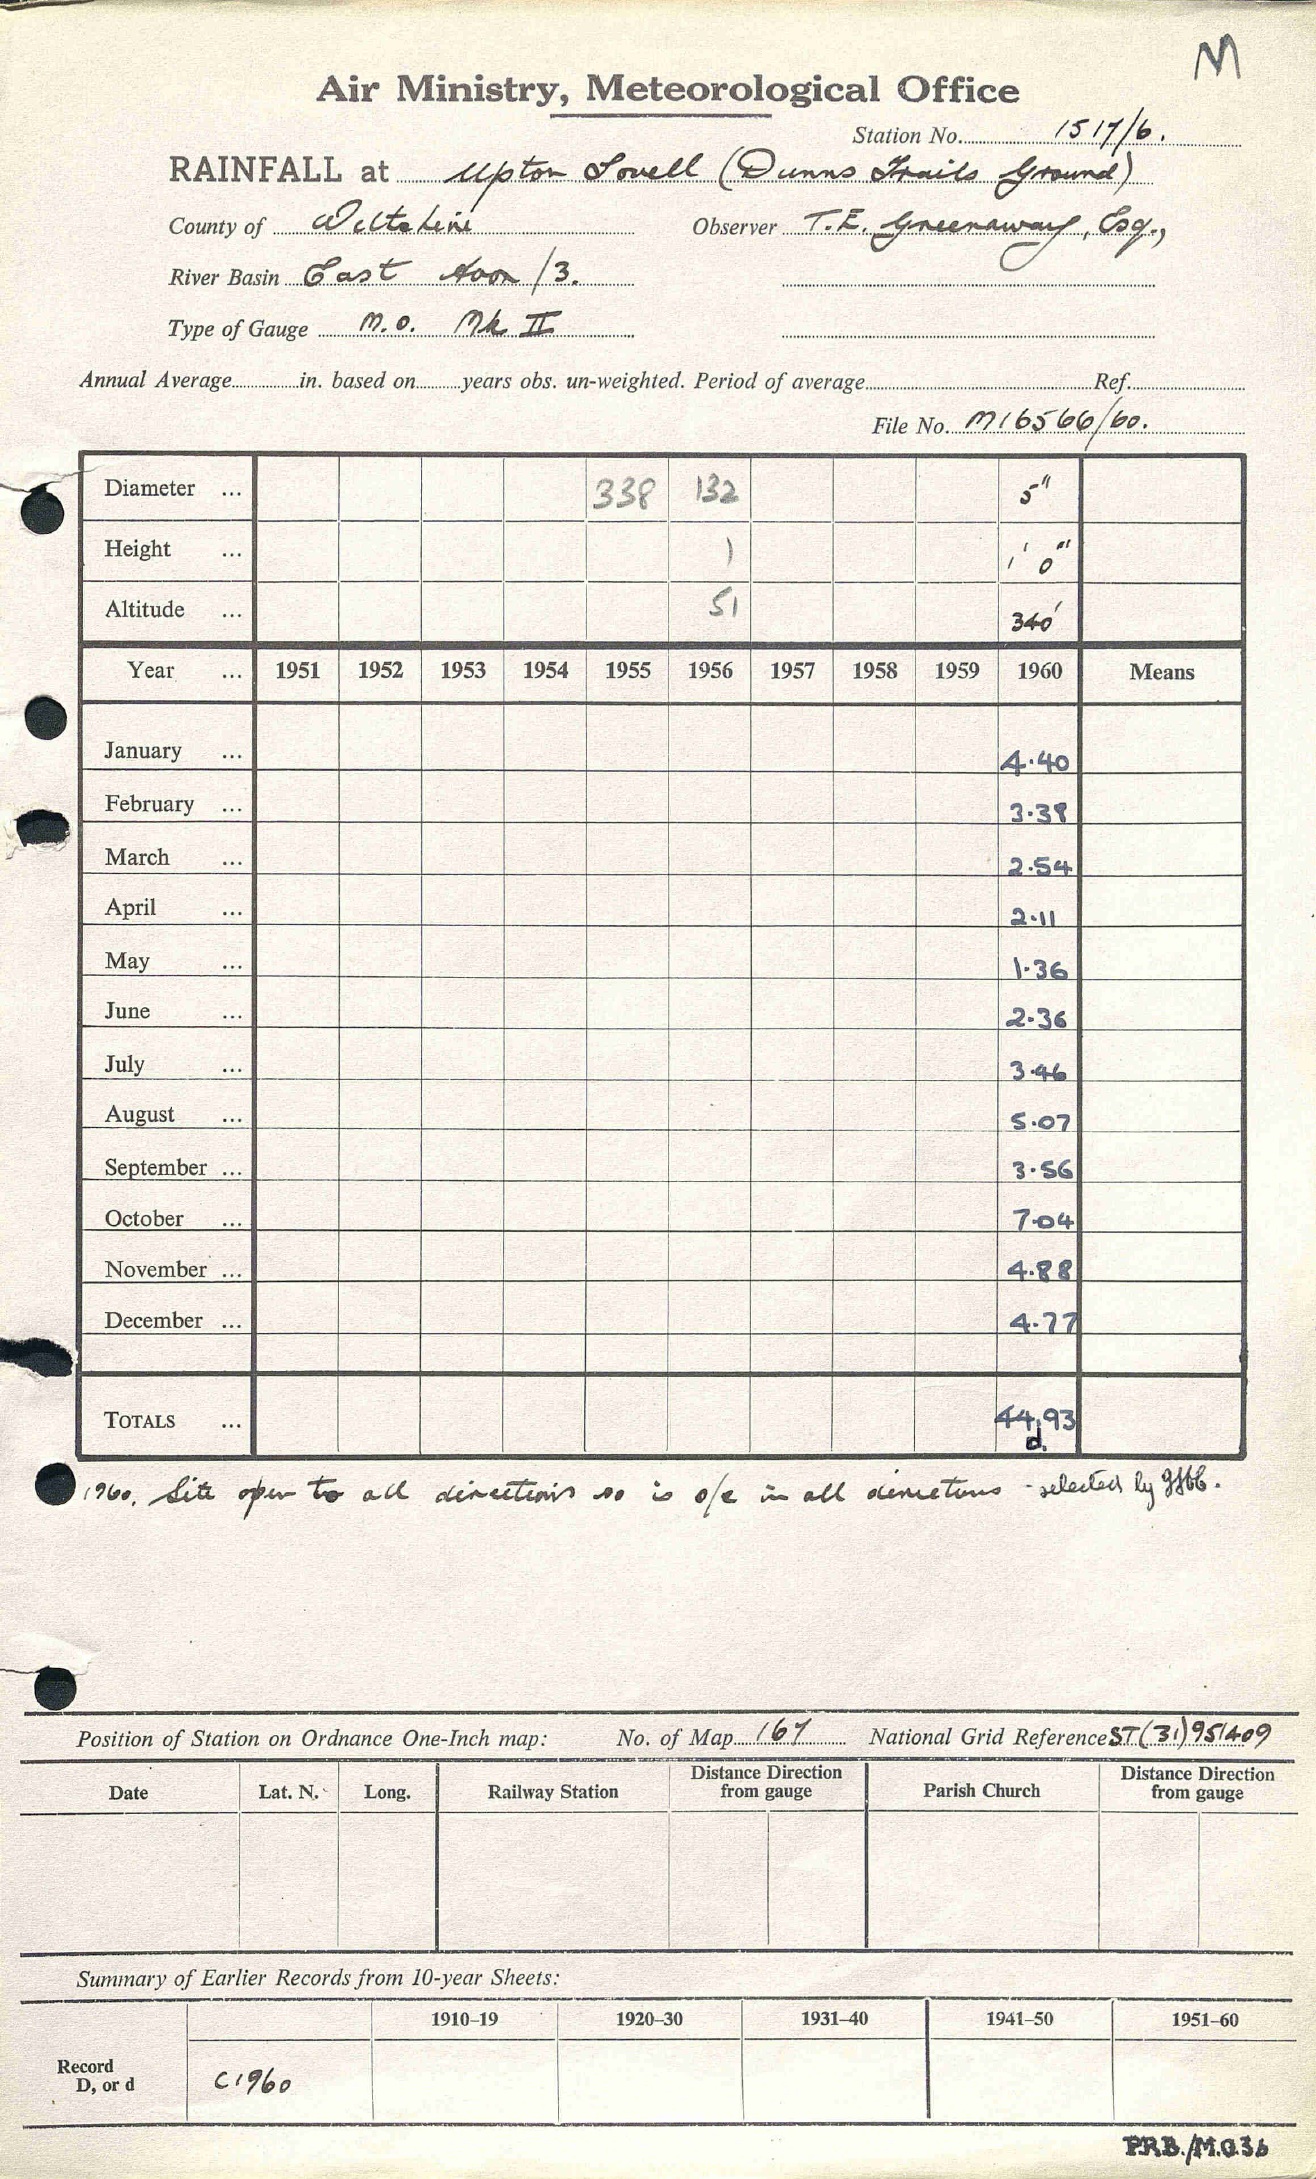 M
Air Ministry, Meteorological Office
Station No. 1517/6.
RAINFALL at Upton Lovell (Dunns Trails Ground)
County of Wiltshire Observer T.E. Greenaway, Esq.,
River Basin East Avon /3.
Type of Gauge M.O. Mk II
Annual Average in. based on years obs. un-weighted. Period of average Ref.
File No. M16566/60.
Diameter ... 338 132 5"
Height ... 1 1' 0"
Altitude ... 51 340'
Year ... 1951 1952 1953 1954 1955 1956 1957 1958 1959 1960 Means
January ... 4.40
February ... 3.38
March ... 2.54
April ... 2.11
May ... 1.36
June ... 2.36
July ... 3.46
August ... 5.07
September ... 3.56
October ... 7.04
November ... 4.88
December ... 4.77
TOTALS ... 44.93
d.
1960. Site open to all directions so is o/e in all directions - selected by
Position of Station on Ordnance One-Inch map: No. of Map 167 National Grid Reference ST(31)951409
Date Lat. N. Long. Railway Station Distance Direction from gauge Parish Church Distance Direction from gauge
Summary of Earlier Records from 10-year Sheets:
1910–19 1920–30 1931–40 1941–50 1951–60
Record
D, or d C1960
P.R.B./M.O.3b